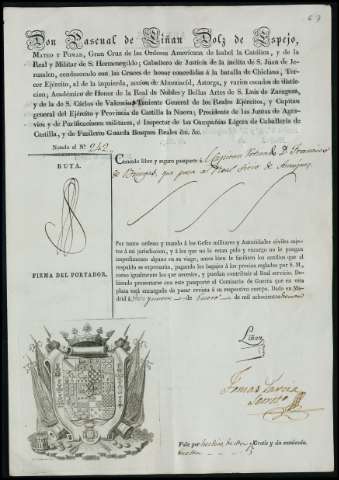 67
Don Pascual de Liñan Dolz de Espejo,
Mateo y Pomar, Gran Cruz de las Ordenes Americana de Isabel la Católica, y de la
Real y Militar de S. Hermenegildo; Caballero de Justicia de la ínclita de S. Juan de Jeru-
rusalen, condecorado con las Cruces de honor concedidas á la batalla de Chiclana, Ter-
cer Ejército, al de la izquierda, accion de Almonacid, Astorga, y varios escudos de distin-
cion; Académico de Honor de la Real de Nobles y Bellas Artes de S. Luis de Zaragoza,
y de la de S. Cárlos de Valencia; Teniente General de los Reales Ejércitos, y Capitan
general del Ejército y Provincia de Castilla la Nueva; Presidente de las Juntas de Agra-
vios y de Purificaciones militares, é Inspector de las Compañías Ligera de Caballería de
Castilla, y de Fusileros Guarda Bosques Reales &c. &c.
Notada al N.º 242.
RUTA.
Concedo libre y seguro pasaporte á
que pasa al Real Sitio de Aranjuez
FIRMA DEL PORTADOR.
Por tanto ordeno y mando á los Gefes militares y Autoridades civiles sujetos
á mi jurisdiccion, y á los que no lo estan pido y encargo no le pongan
impedimento alguno en su viage, antes bien le faciliten los auxilios que al
respaldo se expresarán, pagando los bagajes á los precios reglados por S. M.,
como igualmente los que necesite, y puedan contribuir al Real servicio. De-
biendo presentarse con este pasaporte al Comisario de Guerra que en esta
plaza está encargado de pasar revista á su respectivo cuerpo. Dado en Ma-
drid á de Enero de mil ochocientos
Liñan
Tomas Garcia
Vale por Gratis y sin enmienda.